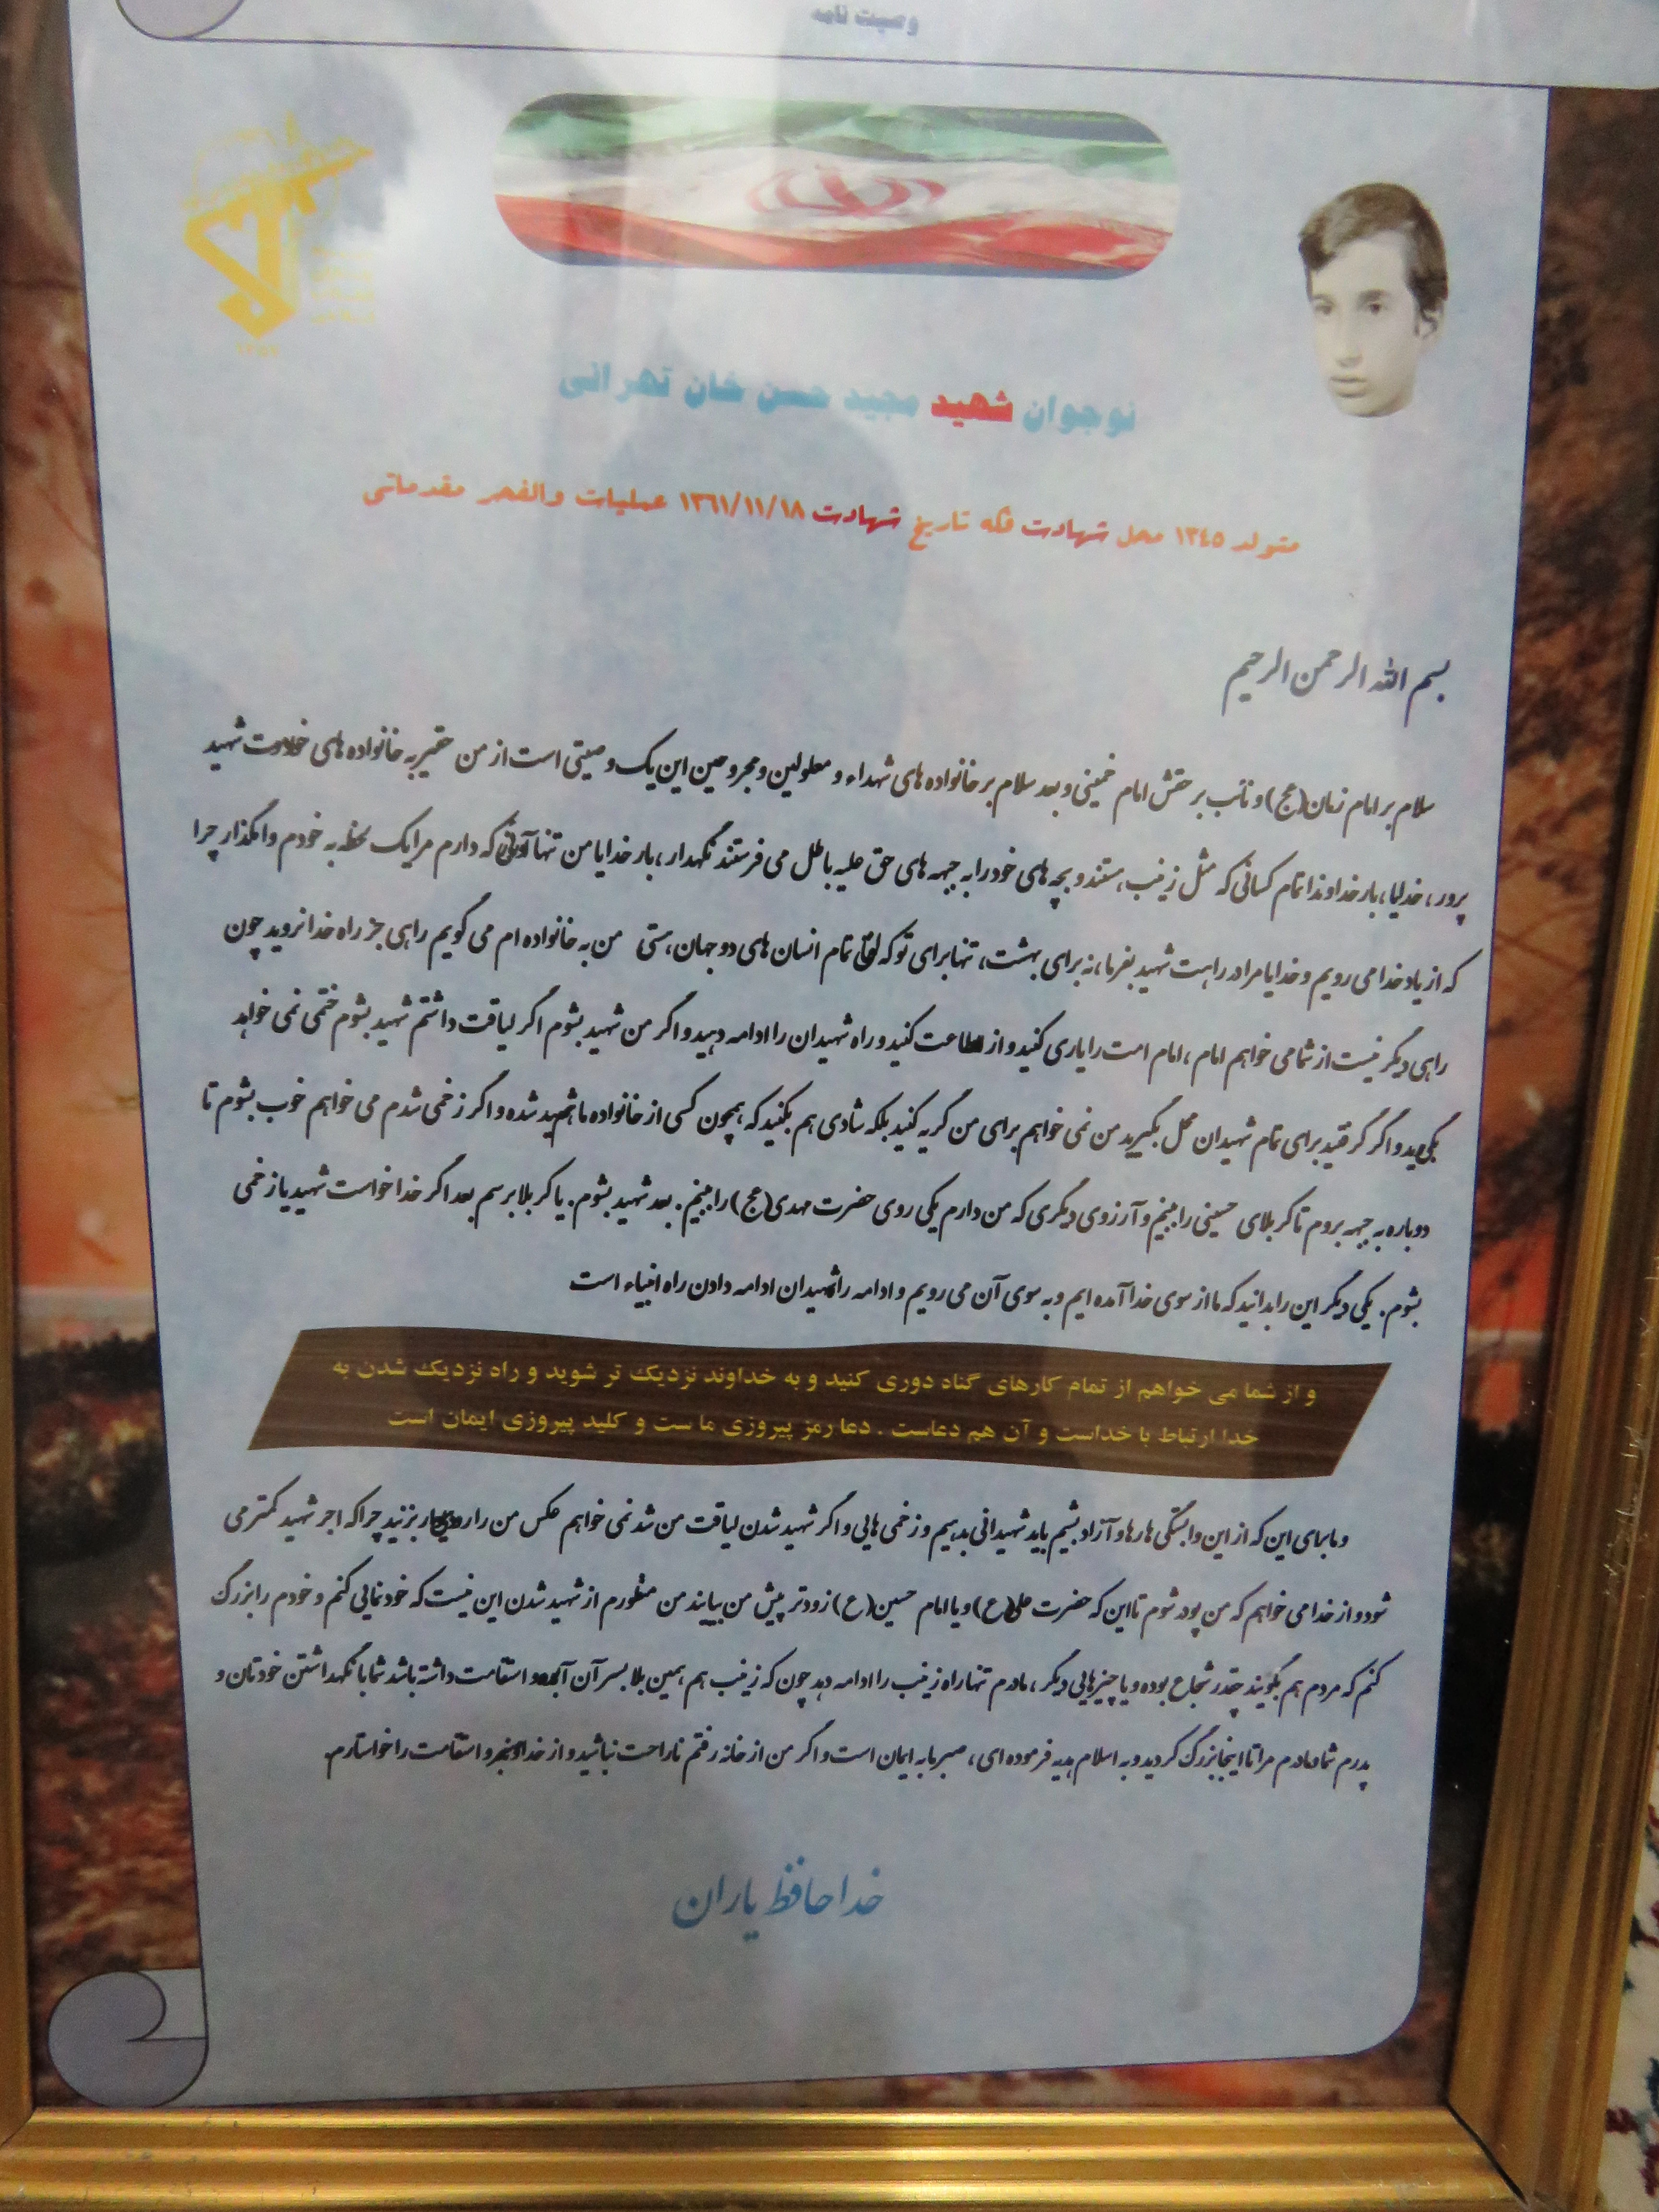 وصیت نامه
نوجوان شهید مجید حسن خان تهرانی
متولد ۱۳۴۵ محل شهادت فکه تاریخ شهادت ۱۳۶۱/۱۱/۱۸ عملیات والفجر مقدماتی
بسم الله الرحمن الرحیم
سلام بر امام زمان(عج) و نائب بر حقش امام خمینی و بعد سلام بر خانواده های شهداء و معلولین و مجروحین این یک وصیتی است از من حقیر به خانواده های شهید
پرور، خدایا، بار خداوندا تمام کسانی که مثل زینب هستند و بچه های خود را به جبهه های حق علیه باطل می فرستند نگهدار، بار خدایا من تنها که دارم مرا یک لحظه به خودم وامگذار چرا
که از یاد خدا می رویم و خدایا مرا در راهت شهید بفرما، نه برای بهشت، تنها برای تو که تمام انسان های دو جهان هستی من به خانواده ام می گویم راهی جز راه خدا نروید چون
راهی دیگر نیست از شما می خواهم امام، امام امت را یاری کنید و از اطاعت کنید و راه شهیدان را ادامه دهید و اگر من شهید بشوم اگر لیاقت داشتم شهید بشوم ختمی نمی خواهد
بگیرید و اگر گرفتید برای تمام شهیدان محل بگیرید من نمی خواهم برای من گریه کنید بلکه شادی هم بکنید که همچون کسی از خانواده ما شهید شده و اگر زخمی شدم می خواهم خوب بشوم تا
دوباره به جبهه بروم تا کربلای حسینی را ببینم و آرزوی دیگری که من دارم یکی روی حضرت مهدی(عج) را ببینم. بعد شهید بشوم. یا کربلا برسم بعد اگر خدا خواست شهید یا زخمی
بشوم. یکی دیگر این را بدانید که ما از سوی خدا آمده ایم و به سوی آن می رویم و ادامه راه شهیدان ادامه دادن راه انبیاء است
و از شما می خواهم از تمام کارهای گناه دوری کنید و به خداوند نزدیک تر شوید و راه نزدیک شدن به
خدا ارتباط با خداست و آن هم دعاست . دعا رمز پیروزی ما ست و کلید پیروزی ایمان است
و ما برای این که از این وابستگی ها رها و آزاد بشیم باید شهیدانی بدهیم و زخمی هایی و اگر شهید شدن لیاقت من شد نمی خواهم عکس من را در بزنید چرا که اجر شهید کمتر می
شود و از خدا می خواهم که من پودر شوم تا این که حضرت علی(ع) و یا امام حسین(ع) زودتر پیش من بیایند من منظورم از شهید شدن این نیست که خودنمایی کنم و خودم را بزرگ
کنم که مردم هم بگویند چقدر شجاع بوده و یا چیزهایی دیگر، مادرم تنها راه زینب را ادامه دهد چون که زینب هم همین بلا بسر آن آمد و استقامت داشته باشد شما با نگهداشتن خودتان و
پدرم شما مادرم مرا تا اینجا بزرگ کردید و به اسلام هدیه فرموده ای، صبر مایه ایمان است و اگر من از خانه رفتم ناراحت نباشید و از خداوند صبر و استقامت را خواستارم.
خداحافظ یاران